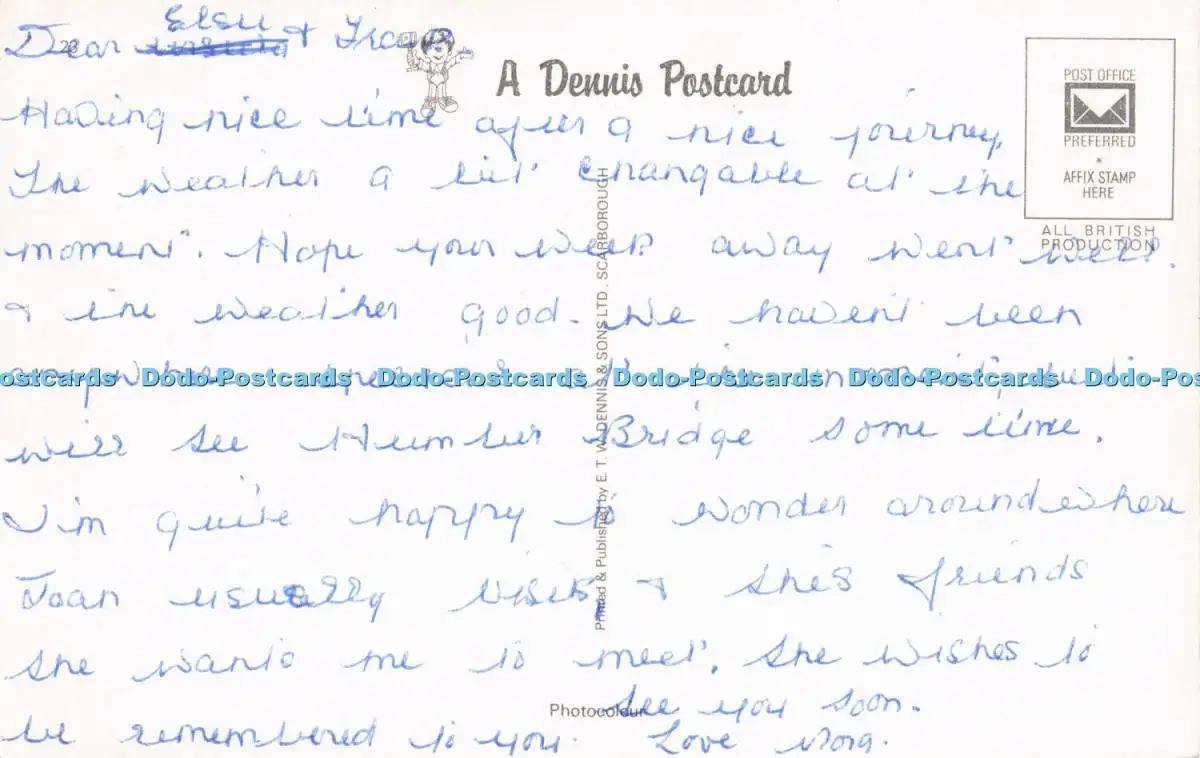 Elsu
Dear & Frank.
A Dennis Postcard
POST OFFICE
PREFERRED
AFFIX STAMP
HERE
ALL BRITISH
PRODUCTION
Having nice time after a nice journey.
The weather a bit changable at the
moment. Hope your week away went well.
& the weather good. We havent been
but
will see Humber Bridge some time.
I'm quite happy to wonder around where
Joan usually visits & she's friends
she wants me to meet. She wishes to
be remembered to you. See you soon.
Love
Photocolour
Printed & Published by E. T. W. DENNIS & SONS LTD., SCARBOROUGH
Dodo-Postcards Dodo-Postcards Dodo-Postcards Dodo-Postcards